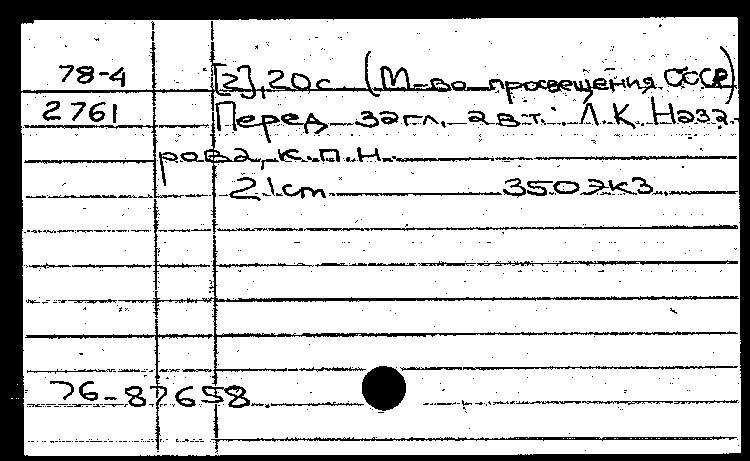 78-4 [2], 20 с. (М-во просвещения СССР)
2761 Перед загл. авт.: Л. К. Наза-
рова, к.п.н.
21 cm 350 экз
76-87658